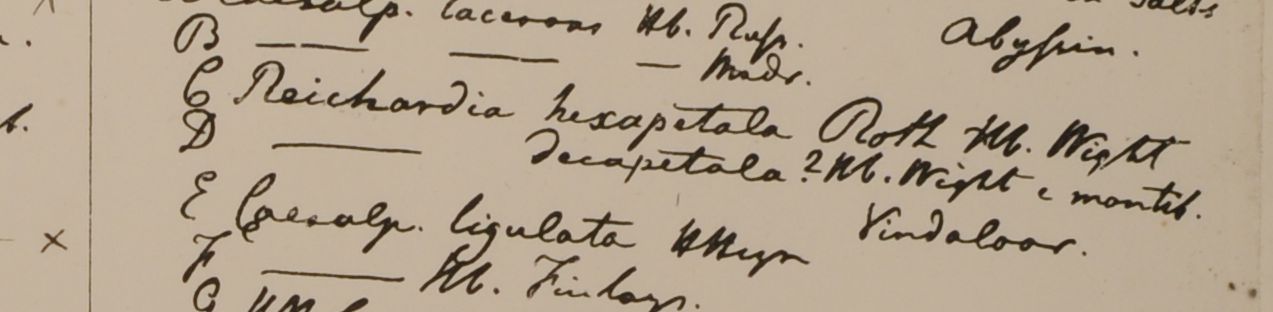 Caesalp. lacerans Hb. Russ. Abyssin.
B — — — Madr.
C Reichardia hexapetala Roth Hb. Wight
D — decapetala? Hb. Wight e montib. Vindaloor.
E Caesalp. ligulata HHeyn
F — Hb. Finlays.
G